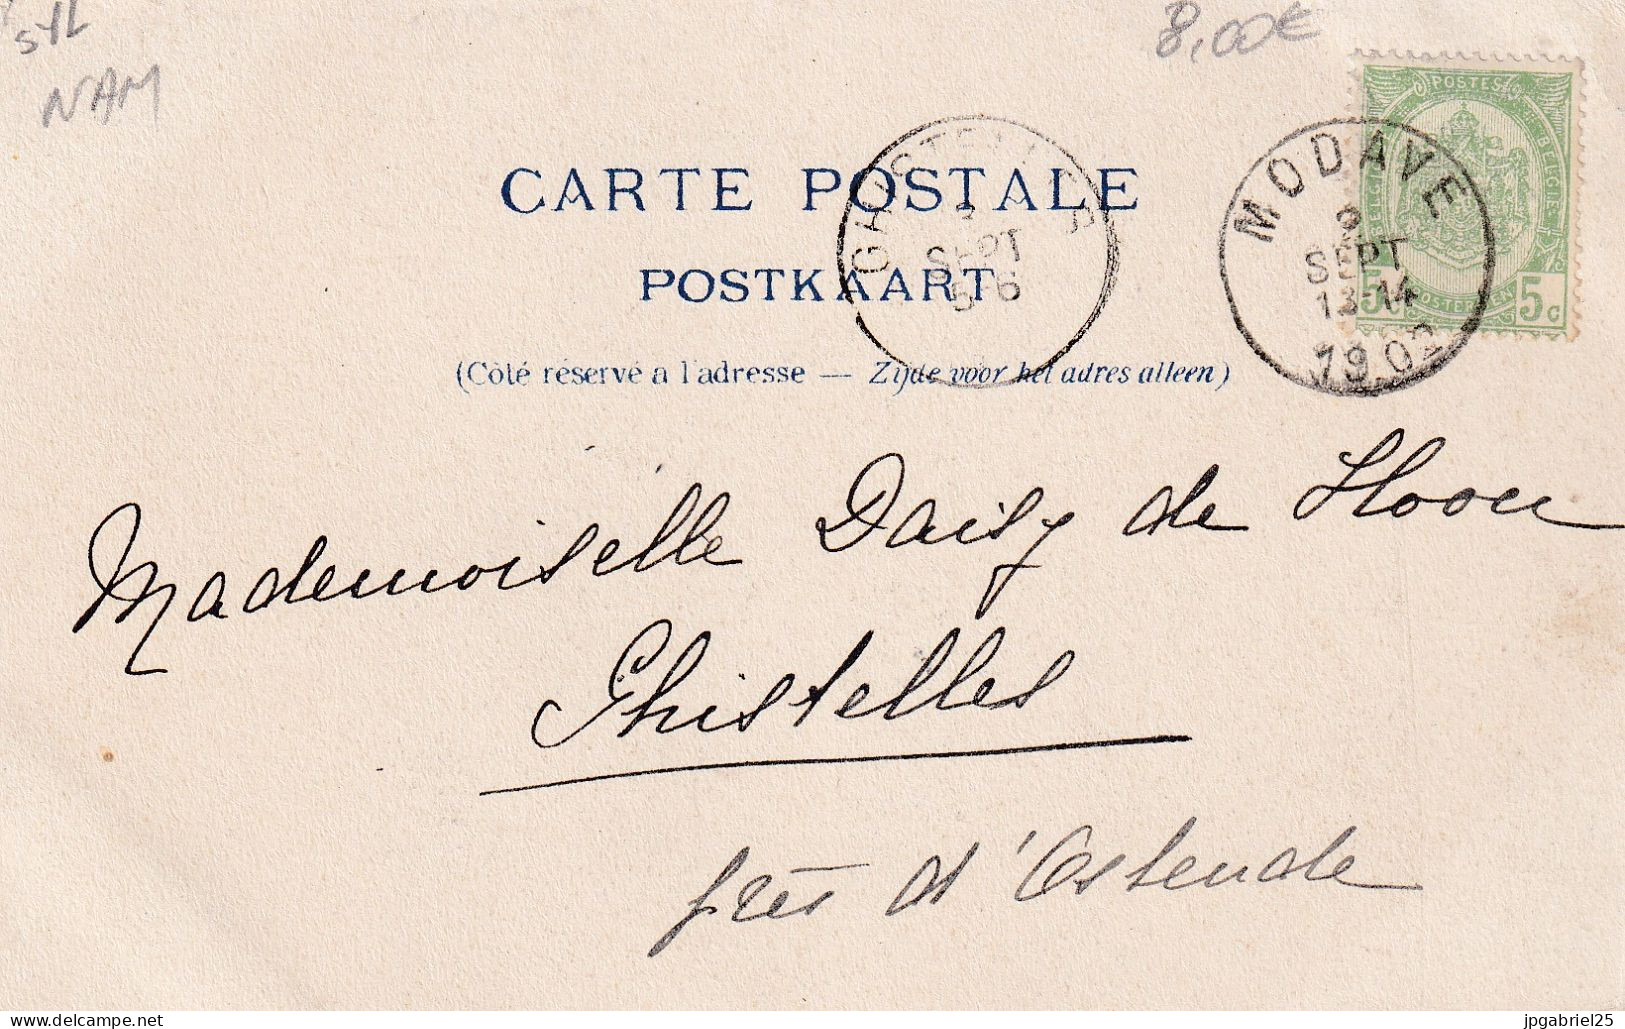 SYL
NAM
8,00€
POSTES
BELGIQUE
BELGIE
5 POSTERIJEN 5c
MODAVE
2
SEPT
13-14
1902
GHISTELLES
SEPT
5-6
CARTE POSTALE
POSTKAART
(Côté réservé a l'adresse — Zijde voor het adres alleen)
Mademoiselle Daisy de Hoon
Ghistelles
près d'Ostende
delcampe.net
jpgabriel25